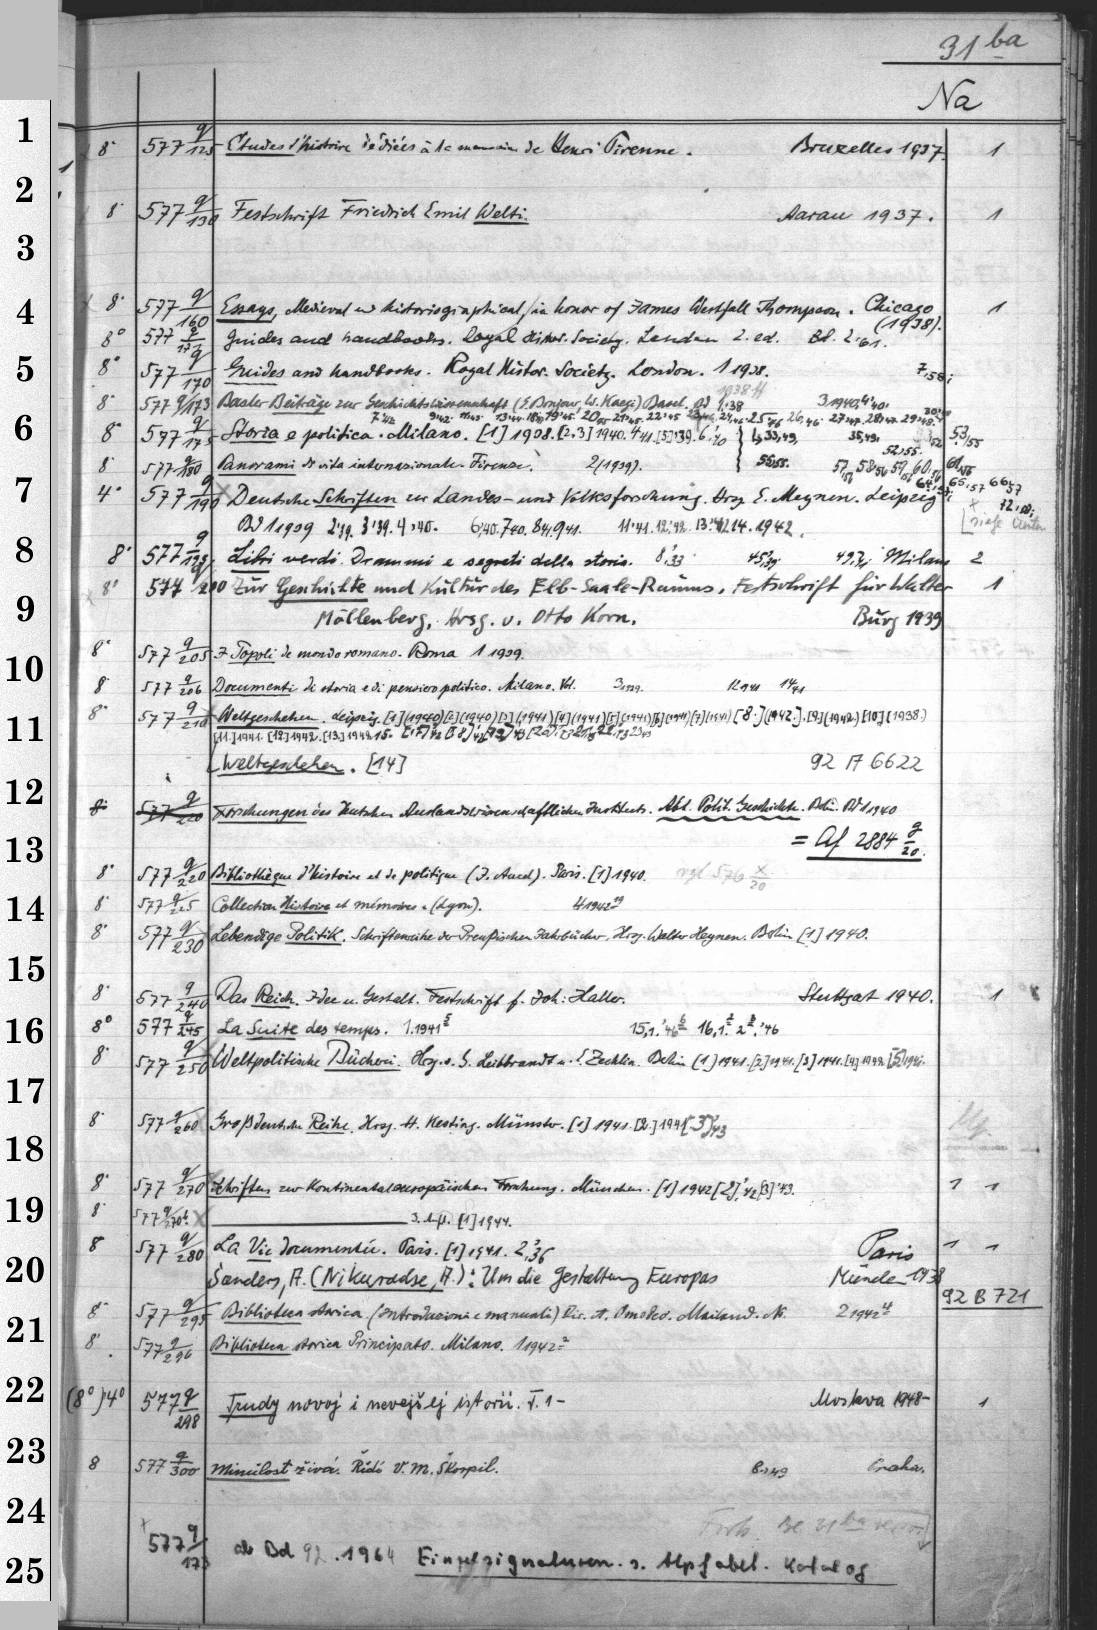 31 ba
Na
1
8° 577 q/125 Etudes d'histoire dédiées à la memoire de Henri Pirenne. Bruxelles 1937. 1
2
8° 577 q/130 Festschrift Friedrich Emil Welti. Aarau 1937. 1
3
4
8° 577 q/160 Essays, Medieval and historiographical, in honor of James Westfall Thompson. Chicago 1
(1938).
8° 577 q Guides and handbooks. Royal Histor. Society. London 2. ed. Bd. 2.'61.
5
8° 577 q/170 Guides and handbooks. Royal Histor. Society. London. 1 1938. 7,58;
8° 577 q/173 Basler Beiträge zur Geschichtswissenschaft (E. Bonjour W. Kaegi) Basel. Bd 1.'38 3 1940, 4'40.
6
8° 577 q/175 Storia e politica. Milano. [1] 1938. [2.3] 1940. 4'41. [5]'39. 6,'40
8° 577 q/180 Panorami di vita internazionale. Firenze. 2 (1939).
7
4° 577 q/190 Deutsche Schriften zur Landes- und Volksforschung. Hrsg E. Meynen. Leipzig
Bd 1 1939 2'39. 3'39. 4,'40. 6,'40. 7'40. 8'41, 9'41. 11'41. 12.'42. 13.'42 14. 1942.
8
8° 577 q/195 Libri verdi. Drammi e segreti della storia. 8,'33 45,'39 49,'41 Milano 2
8° 577 q/200 Zur Geschichte und Kultur des Elb-Saale-Raums. Festschrift für Walter 1
9
Möllenberg, Hrsg. v. Otto Korn. Burg 1939
10
8° 577 q/205 I Popoli de mondo romano. Roma 1 1939.
8° 577 q/206 Documenti di storia e di pensiero politico. Milano. Vol. 3 1939. 12 1941 14,41
8° 577 q/210 Weltgeschehen. Leipzig. [1] (1940) [2] (1940) [3] (1941) [4] (1941) [5] (1941) [6] (1941) [7] (1941) [8.] (1942.) [9.] (1942.) [10] (1938.)
11
[11.] 1941. [12] 1942. [13.] 1942.
Weltgeschehen. [14] 92 A 6622
12
8° 577 q/220 Forschungen des Deutschen Auslandswissenschaftlichen Instituts. Abt. Polit. Geschichte. Bln. Bd 1 1940
13
= Af 2884 q/20.
8° 577 q/220 Bibliothèque d'histoire et de politique (J. Ancel). Paris. [1] 1940. vgl 576 x/20
14
8° 577 q/225 Collection Histoire et mémoires. (Lyon). 4 1942
8° 577 q/230 Lebendige Politik. Schriftenreihe der Preußischen Jahrbücher, Hrsg. Walter Heynen. Berlin [1] 1940.
15
8° 577 q/240 Das Reich. Idee u. Gestalt. Festschrift f. Joh. Haller. Stuttgart 1940. 1
16
8° 577 q/245 La Suite des temps. 1.1941 15,1.'46 16,1. 2 '46
8° 577 q/250 Weltpolitische Bücherei. Hrsg. v. G. Leibbrandt u. E. Zechlin. Berlin [1] 1941. [2] 1941. [3] 1941. [4] 1942. [5] 1941.
17
8° 577 q/260 Großdeutsche Reihe. Hrsg. H. Kesting. Münster. [1] 1941. [2.] 1941 [3],43
18
8° 577 q/270 Schriften zur kontinentaleuropäischen Forschung. München. [1] 1942 [2],'42 [3] '43. 1 1
19
8° 577 q/270b 3. Aufl. [1] 1944.
8° 577 q/280 La Vie documentée. Paris. [1] 1941. 2,'36 Paris 1 1
20
Sanders, A. (Nikuradse, A.): Um die Gestaltung Europas München 1938
92 B 721
8° 577 q/295 Biblioteca storica (Introduzioni e manuali) Dir. A. Omodeo. Mailand. N. 2 1942
21
8° 577 q/296 Biblioteca storica Principato. Milano. 1 1942
22
(8°) 4° 577 q/298 Trudy novoj i novejšej istorii. T. 1- Moskva 1948- 1
23
8 577 q/300 Minulost živá. Řídí V. M. Škorpil. 8.1949 Praha.
24
577 q/173 ab Bd 92. 1964 Einzelsignaturen s. Alphabet. Katalog
25